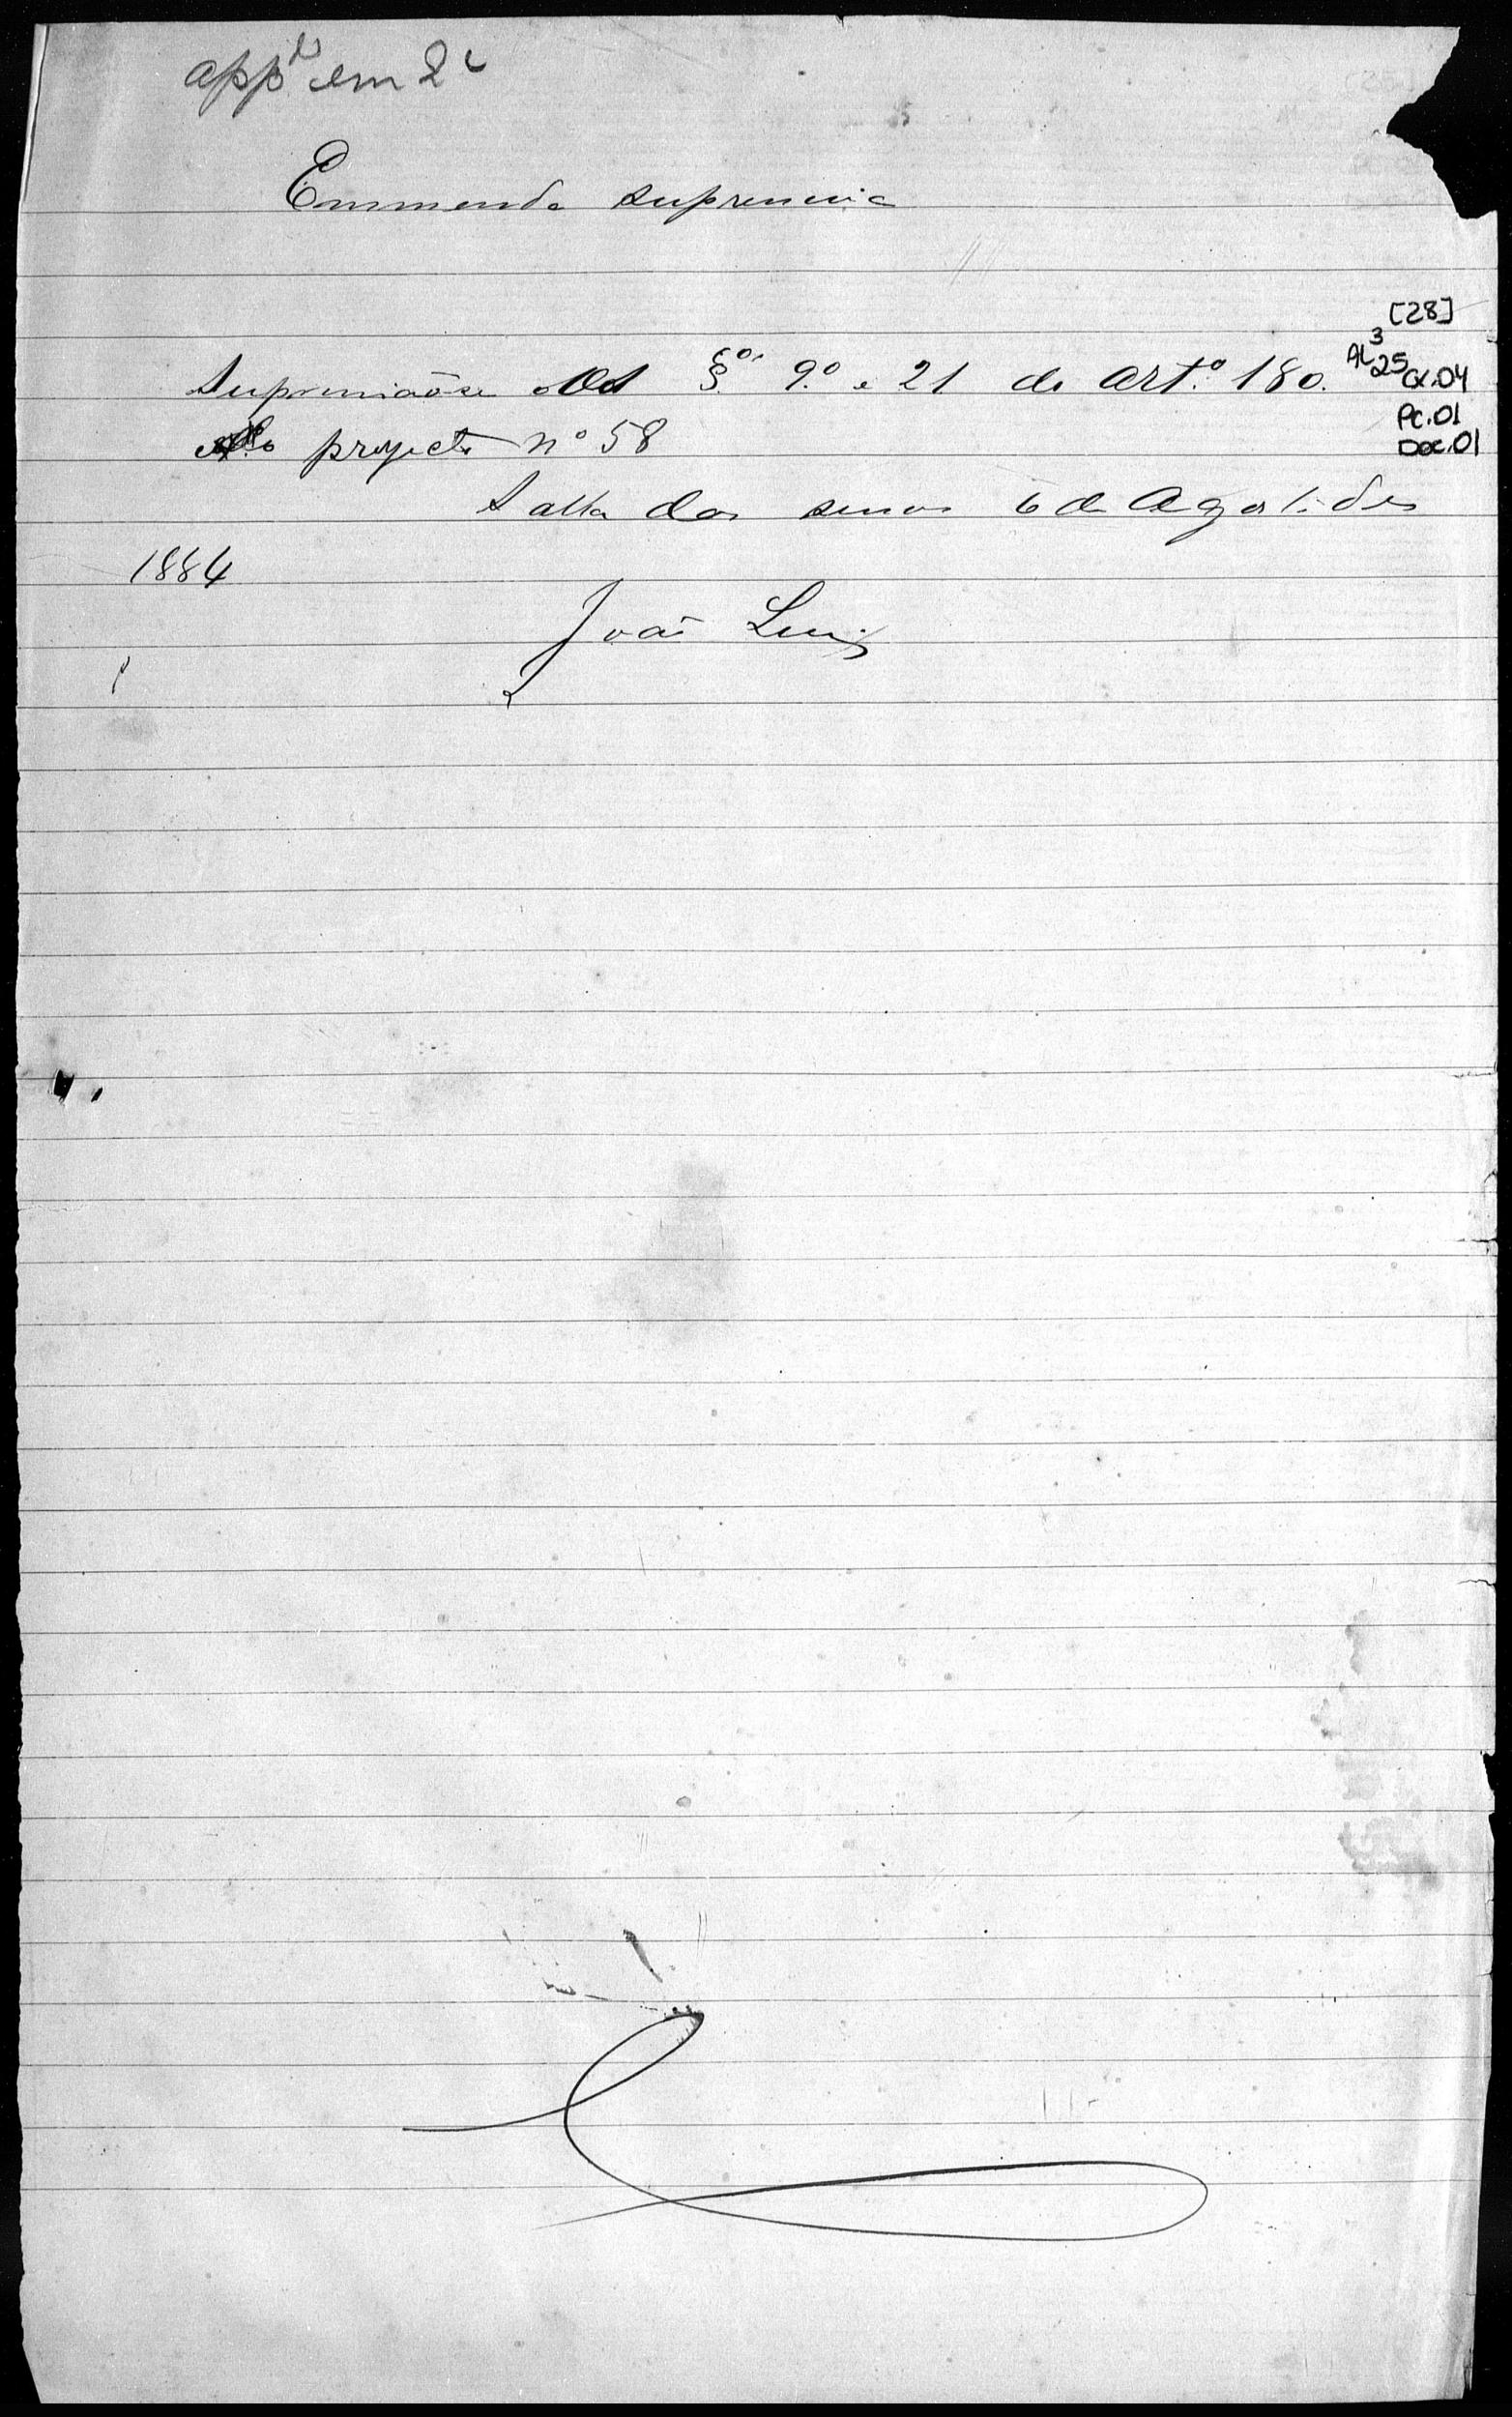 app.º em 2ª
Emmenda supressiva
[28]
Suprimãose os §.os 9.º e 21 do Art.º 180.
AL 3 25 CX.04
PC.01
do projecto nº 58
DOC.01
Salla das sessões 6 de Agosto de
1884
João Luiz